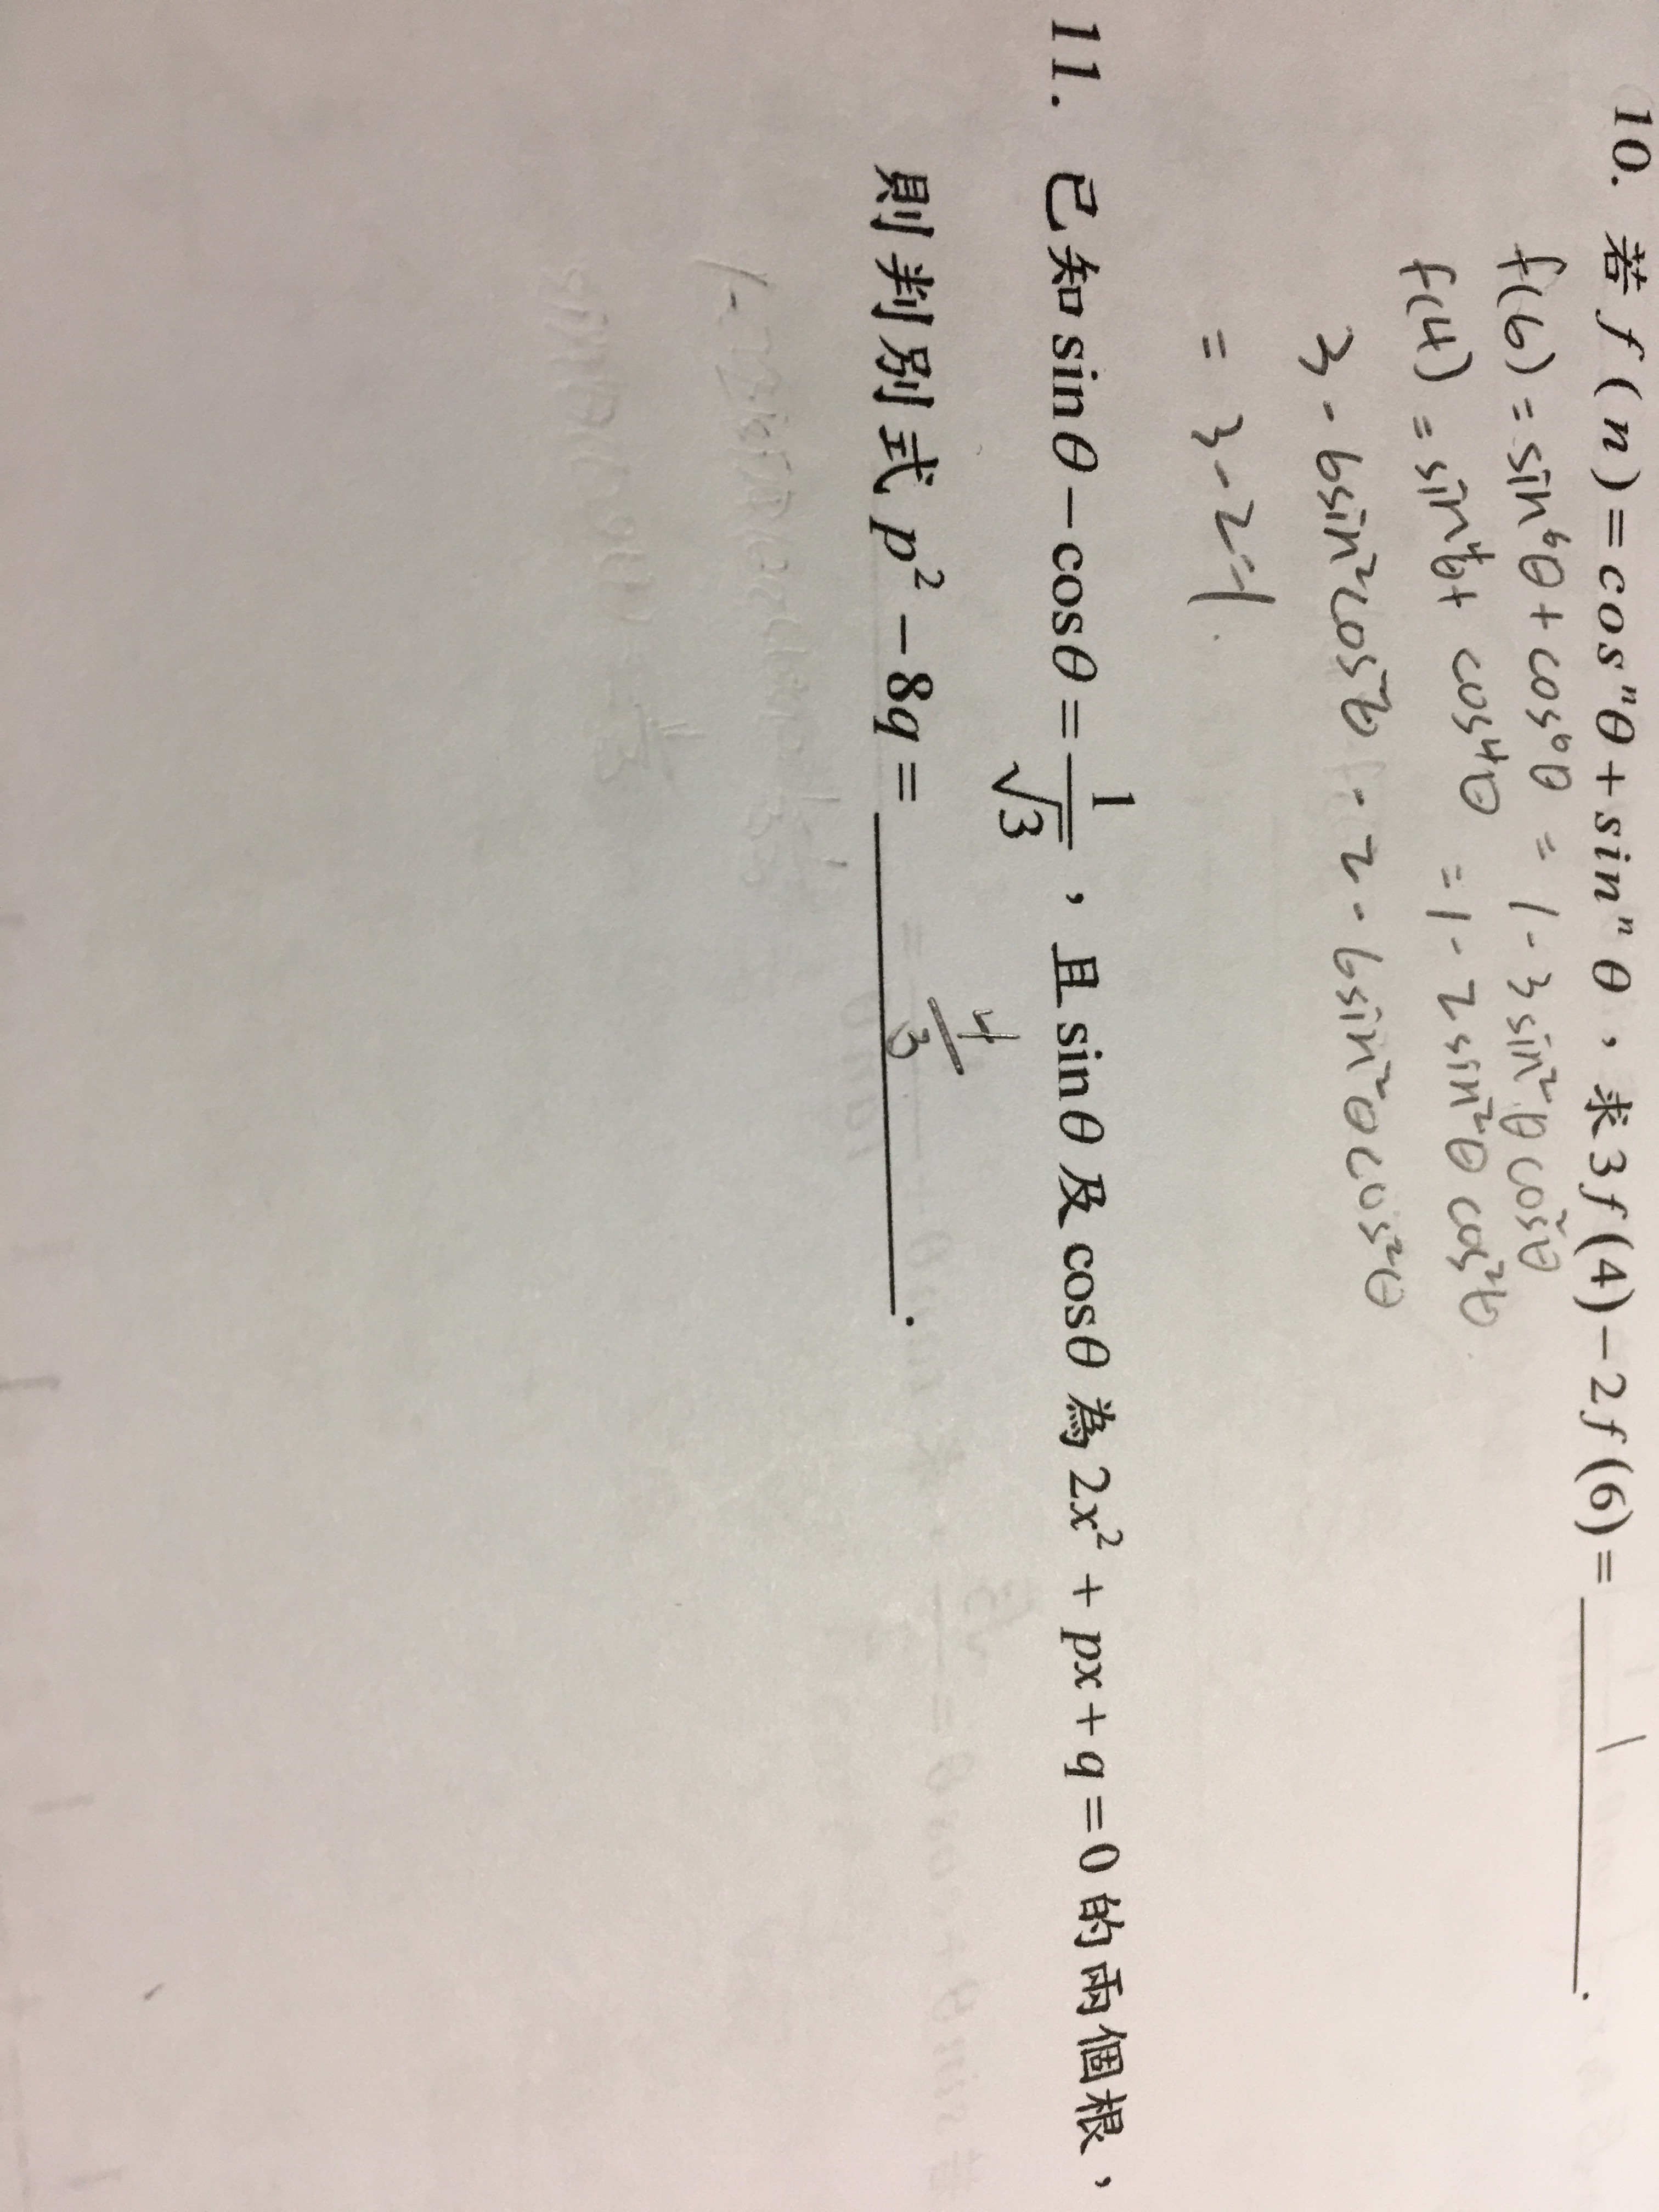 10. 若 f(n)=cosⁿθ+sinⁿθ,求3f(4)-2f(6)= 1 .
f(6) = sin⁶θ + cos⁶θ = 1-3sin²θcos²θ
f(4) = sin⁴θ + cos⁴θ = 1-2sin²θcos²θ
3-6sin²cos²θ-2-6sin²θcos²θ
=3-2=1.
11. 已知 sinθ-cosθ=1/√3,且 sinθ 及 cosθ 為 2x²+px+q=0 的兩個根,
則判別式 p²-8q= 4/3 .